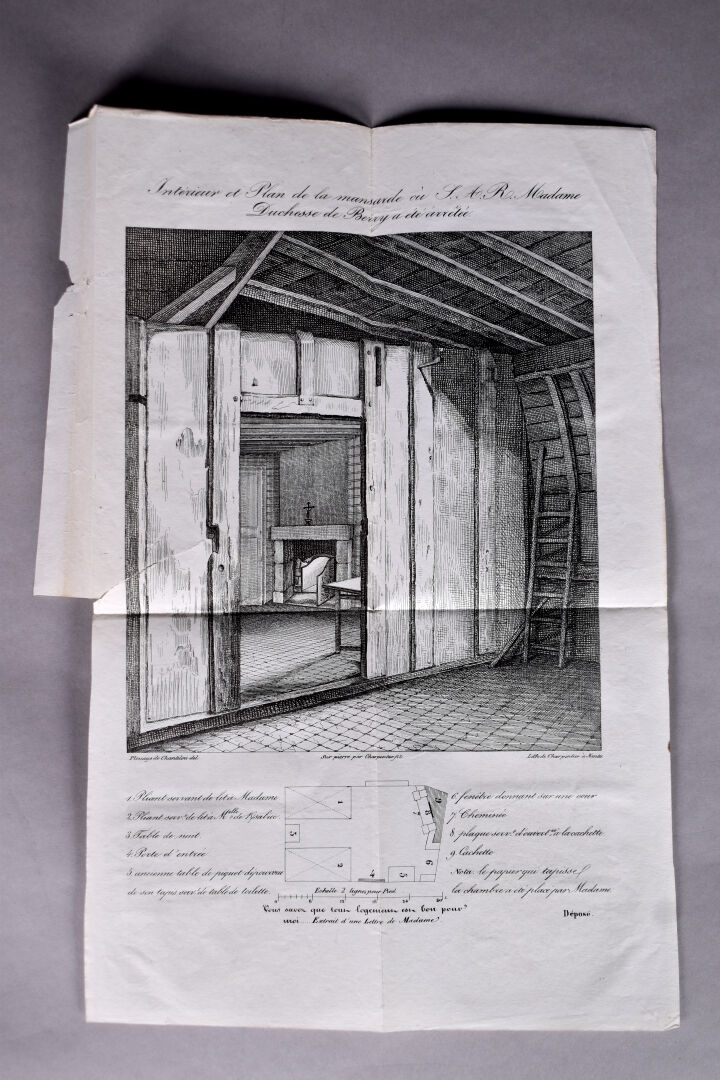 Intérieur et Plan de la mansarde où S. A. R. Madame
Duchesse de Berry a été arrêtée
de Chantelou del.
Sur pierre par Charpentier fils
Lith. de Charpentier à Nantes
1. Pliant servant de lit à Madame
2. Pliant servt. de lit à Melle. de Kersabiec
3. Table de nuit
4. Porte d'entrée
5. ancienne table de piquet dépourvue
de son tapis servt. de table de toilette.
1
2
3
4
5
6
7
8
9
6. fenêtre donnant sur une cour
7. Cheminée
8. plaque servt. d'ouvertre. à la cachette
9. Cachette
Nota. le papier qui tapisse
la chambre a été placé par Madame
Echelle 2 lignes pour Pied.
Vous savez que tout logement est bon pour
moi.... Extrait d'une Lettre de Madame
Déposé.